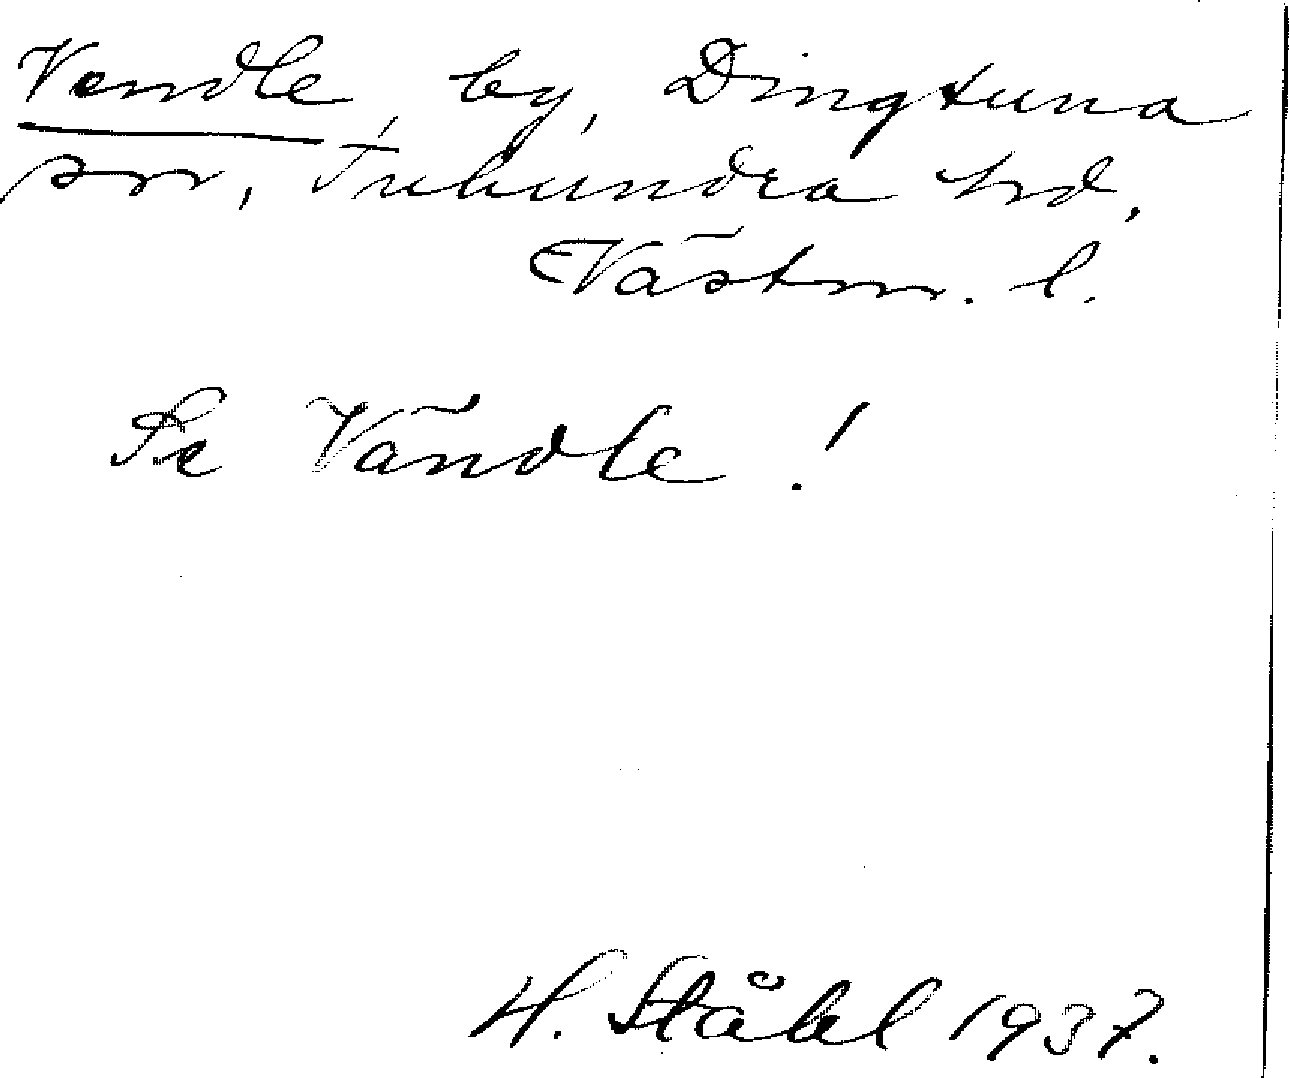 Vendle, by, Dingtuna
sn, Tuhundra hd,
Västm. l.
Se Vändle!
H. Ståhl 1937.